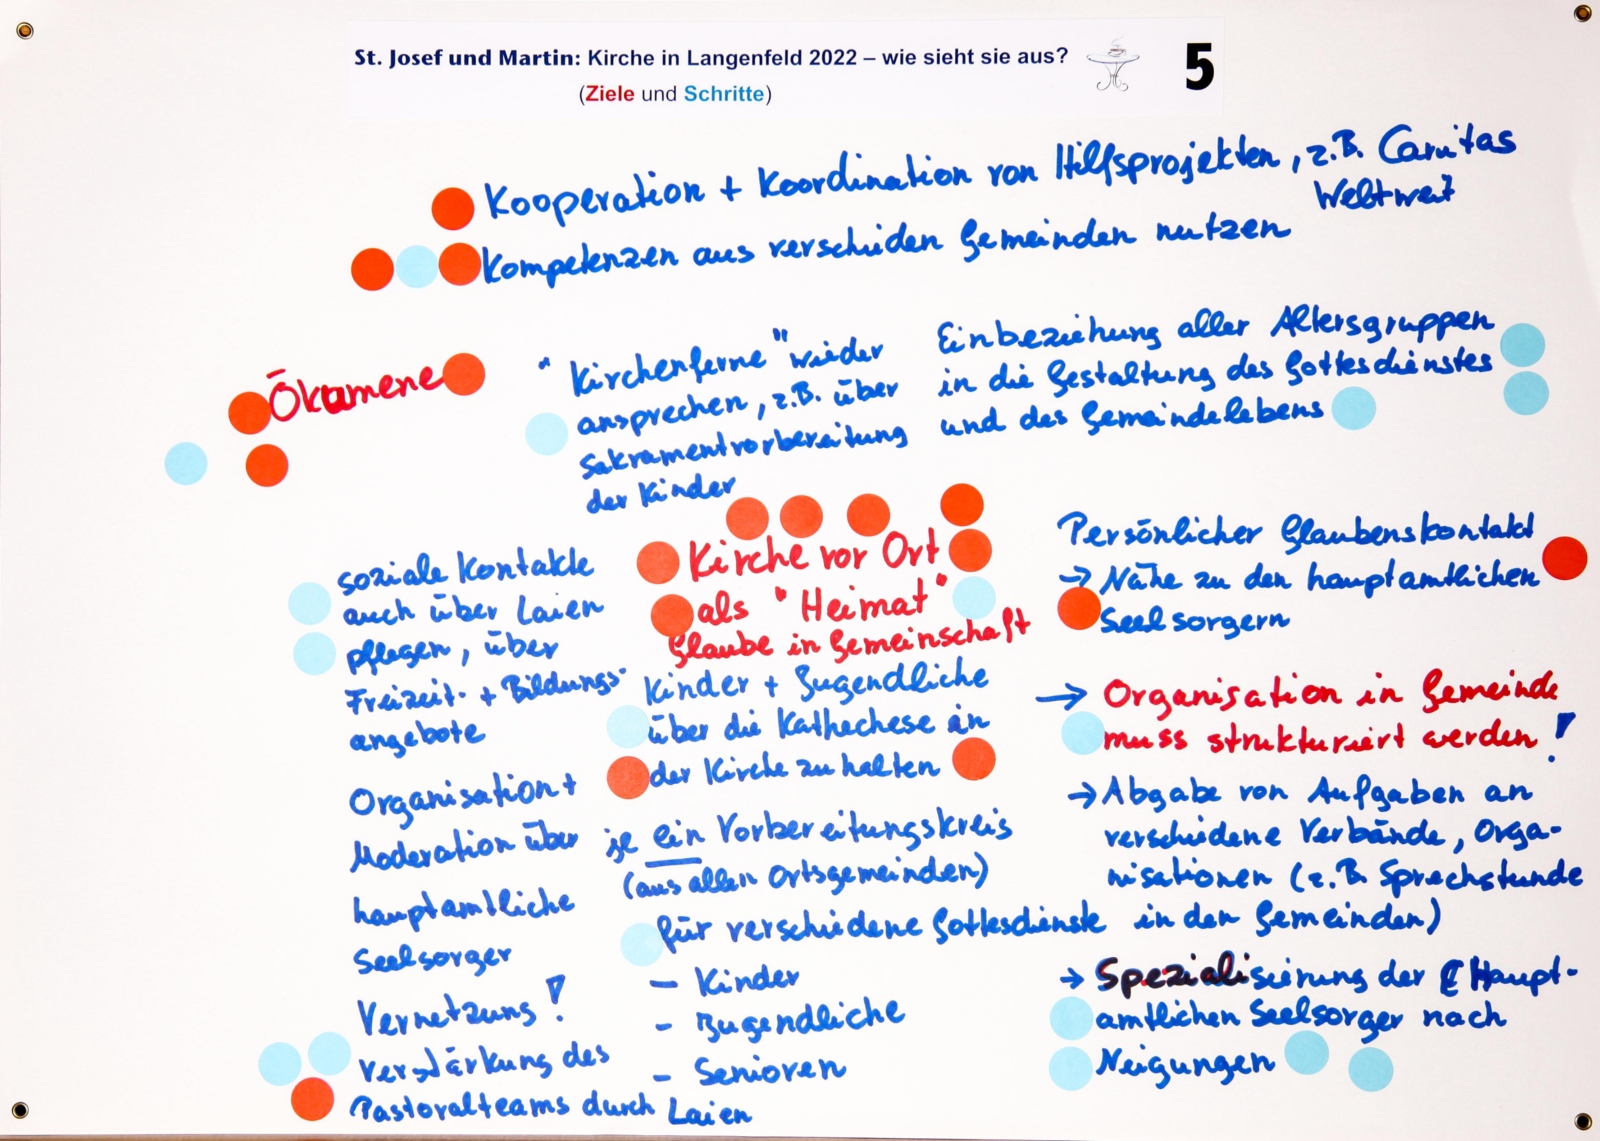 St. Josef und Martin: Kirche in Langenfeld 2022 – wie sieht sie aus?
(Ziele und Schritte)
5
Kooperation + Koordination von Hilfsprojekten, z.B. Caritas
Weltweit
Kompetenzen aus verschiden Gemeinden nutzen
Ökumene
"Kirchenferne" wieder
ansprechen, z.B. über
Sakramentvorbereitung
der Kinder
Einbeziehung aller Altersgruppen
in die Gestaltung des Gottesdienstes
und des Gemeindelebens
soziale Kontakte
auch über Laien
pflegen, über
Freizeit- + Bildungs-
angebote
Kirche vor Ort
als "Heimat"
Glaube in Gemeinschaft
Persönlicher Glaubenskontakt
→ Nähe zu den hauptamtlichen
Seelsorgern
Kinder + Jugendliche
über die Kathechese in
der Kirche zu halten
→ Organisation in Gemeinde
muss strukturiert werden!
Organisation +
Moderation über
hauptamtliche
Seelsorger
je ein Vorbereitungskreis
(aus allen Ortsgemeinden)
für verschiedene Gottesdienste
- Kinder
- Jugendliche
- Senioren
→ Abgabe von Aufgaben an
verschiedene Verbände, Orga-
nisationen (z.B. Sprechstunde
in den Gemeinden)
Vernetzung!
Verstärkung des
Pastoralteams durch Laien
→ Spezialisierung der Haupt-
amtlichen Seelsorger nach
Neigungen